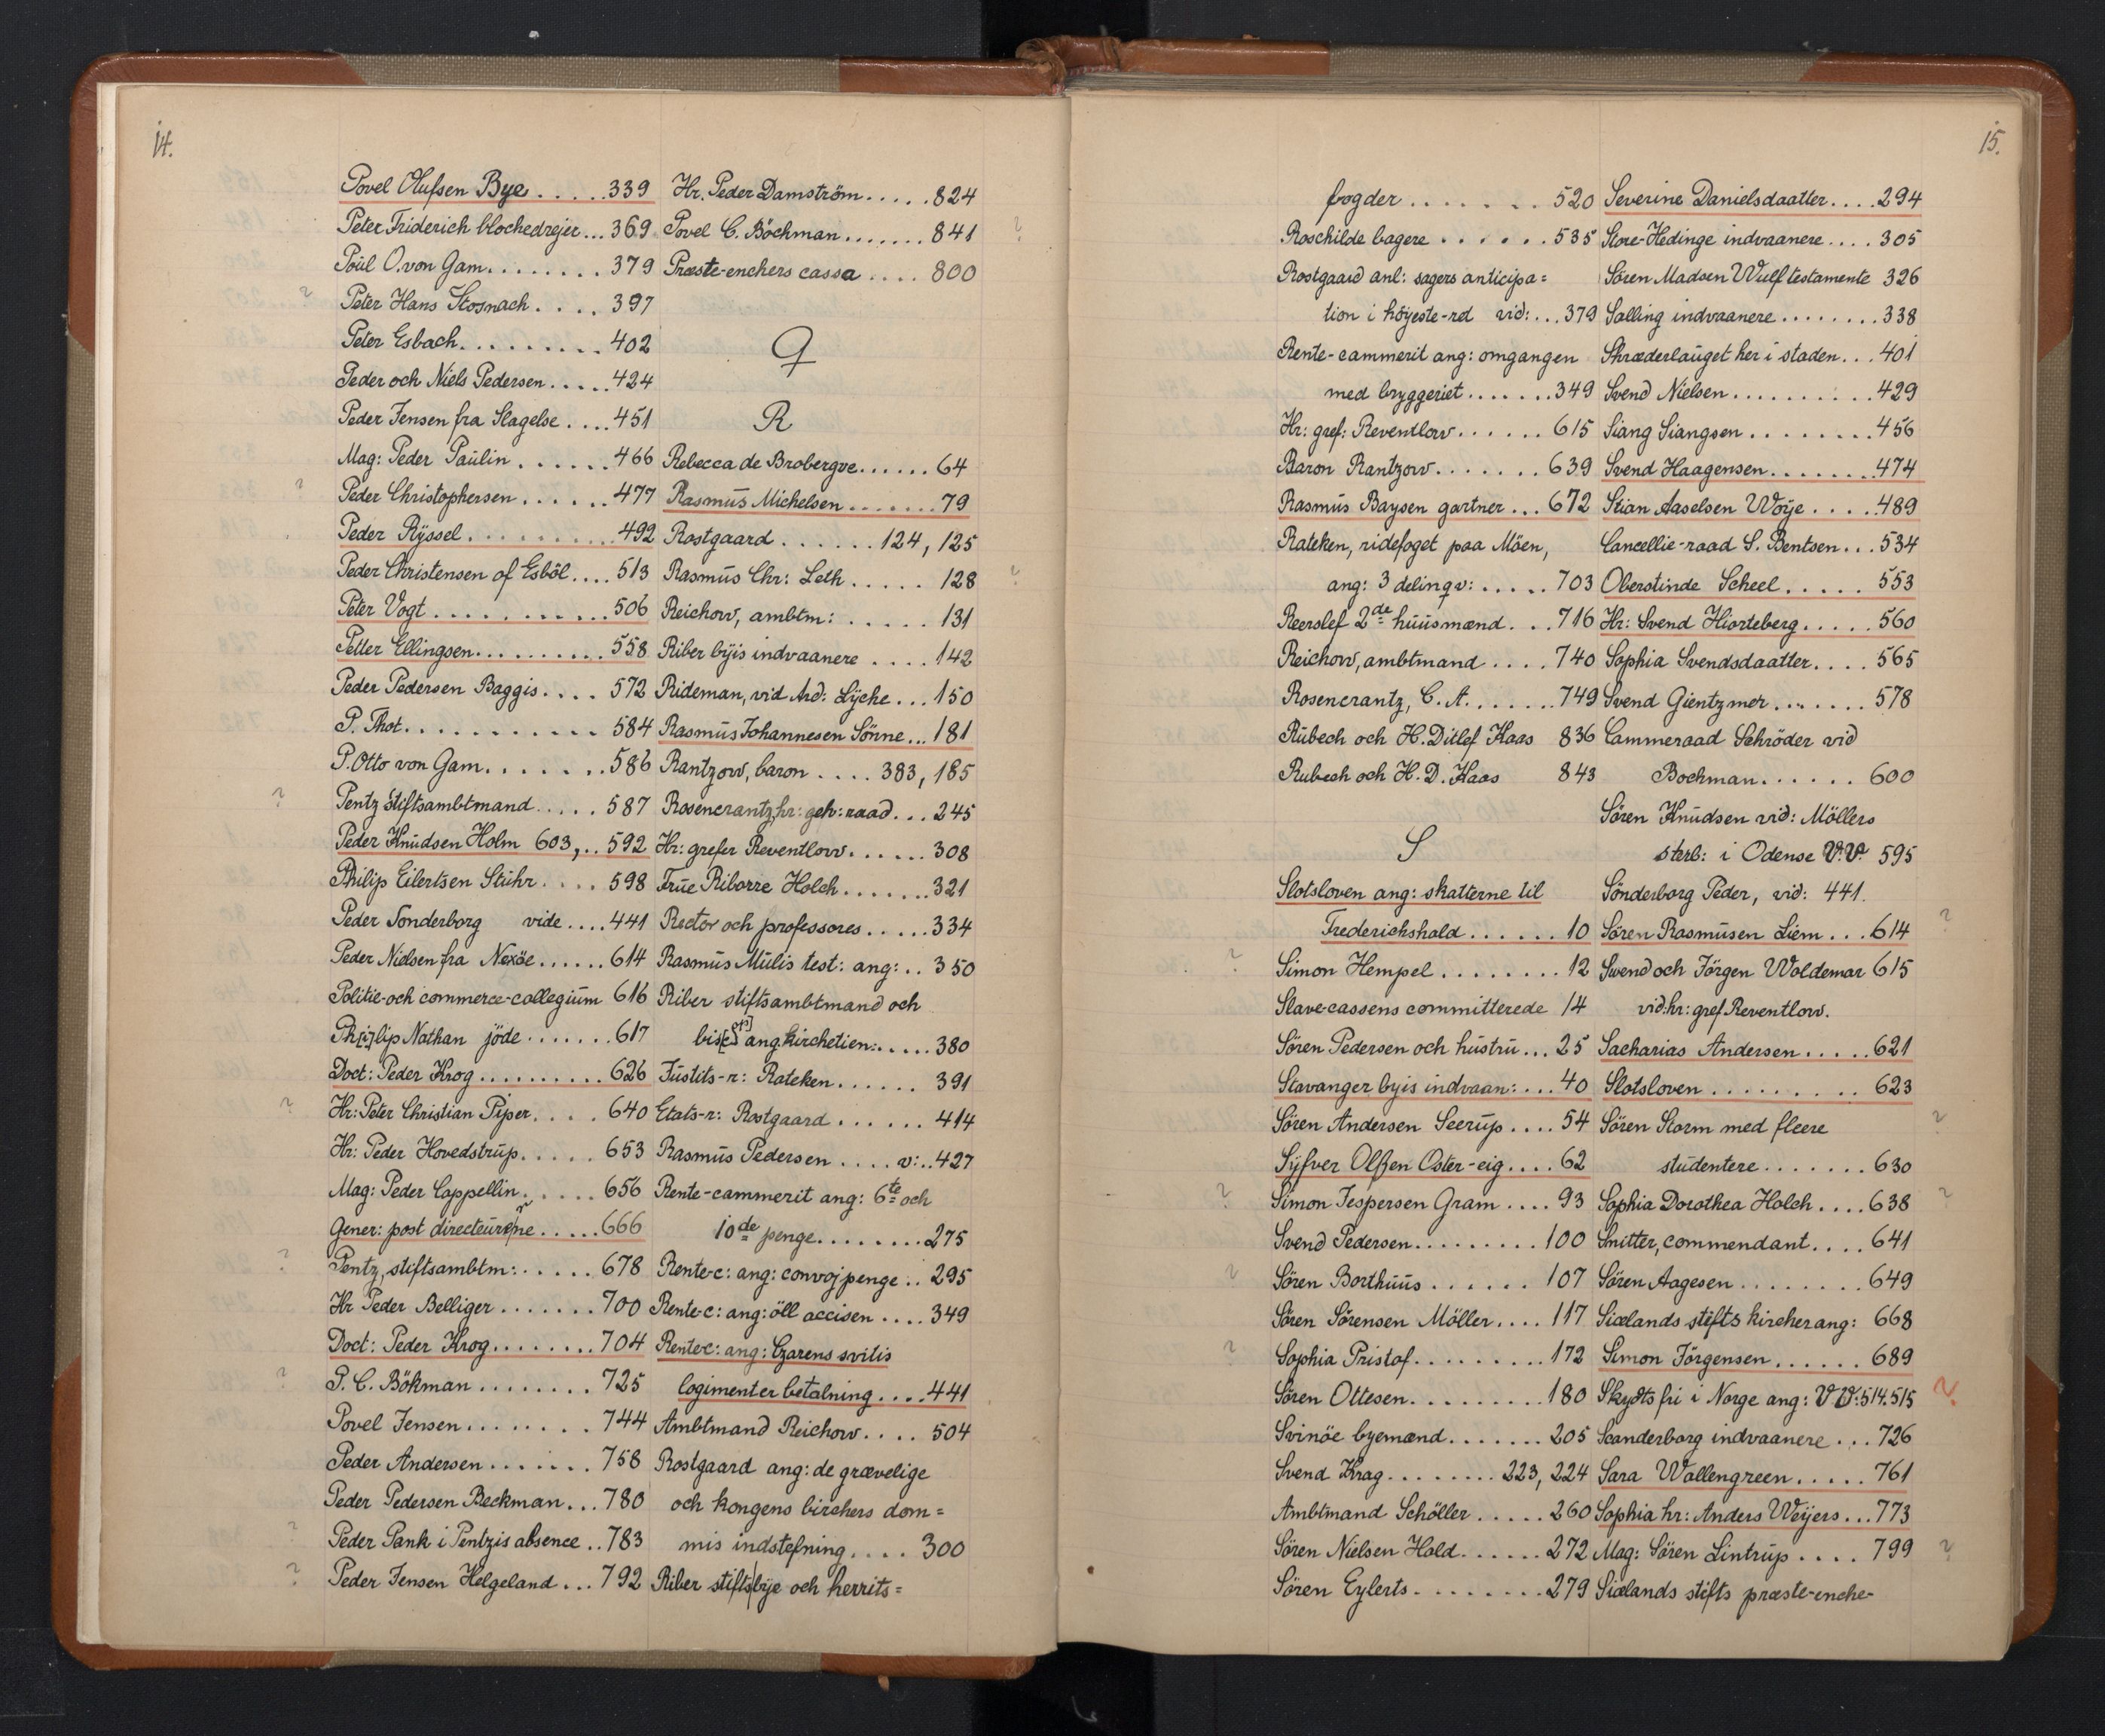 14.
Povel Olufsen Bye.....339
Peter Friderich blochedrejer...369
Poül O. von Gam........379
? Peter Hans Stosnach....397
Peter Esbach..........402
Peder och Niels Pedersen.....424
Peder Jensen fra Slagelse....451
Mag: Peder Paülin......466
? Peder Christophersen......477
Peder Rÿssel..........492
Peder Christensen of Esböl....513
Peter Vogt............506
Petter Ellingsen..........558
Peder Pedersen Baggis....572
P. Thot...........584
P. Otto von Gam.......586
? Pentz stiftsambtmand.....587
Peder Knüdsen Holm 603,..592
Philip Eilertsen Stühr....598
Peder Sonderborg vide....441
Peder Nielsen fra Nexöe......614
Politie-och commerce-collegiüm 616
Ph[i]lip Nathan jöde.......617
Doct: Peder Krog..........626
? Hr: Peter Christian Piper....640
Hr: Peder Hovedstrüp.....653
Mag: Peder Cappellin......656
Gener: post directeürerne.....666
? Pentz, stiftsambtm:.....678
Hr Peder Belliger.......700
Doct: Peder Krog........704
? P. C. Bökman........725
Povel Jensen........744
Peder Andersen.......758
Peder Pedersen Beckman...780
? Peder Pank i Pentzis absence..783
? Peder Jensen Helgeland...792
Hr. Peder Damström.....824
Povel C. Böchman.......841 ?
Præste-enchers cassa....800
Q
R
Rebecca de Brobergve......64
Rasmüs Michelsen.......79
Rostgaard......124, 125
Rasmüs Chr: Leth.....128 ?
Reichow, ambtm:.....131
Riber bÿis indvaanere....142
Rideman, vid Ard: Lÿche...150
Rasmüs Johannesen Sönne...181
Rantzow, baron....383, 185
Rosencrantz, hr: geh: raad...245
Hr: grefer Reventlow......308
Früe Riborre Holch.......321
Rector och professores.....334
Rasmüs Mülis test: ang:..350
Riber stiftsambtmand och
ang. kirchetien:.....380
Jüstits-r: Rateken......391
Etats-r: Rostgaard......414
Rasmüs Pedersen....v:..427
Rente-cammerit ang: 6te och
10de penge........275
Rente-c: ang: convojpenge..295
Rente-c: ang: öll accisen....349
Rente-c: ang: Czarens svitis
logimenter betalning....441
Ambtmand Reichow....504
Rostgaard ang: de grævelige
och kongens birchers dom=
mis indstefning....300
Riber stifts|bÿe och herrits=
15.
fogder.......520
Roschilde bagere......535
Rostgaard anl: sagers anticipa=
tion i höyeste-rd vid:...379
Rente-cammerit ang: omgangen
med bryggeriet.......349
Hr: gref: Reventlow......615
Baron Rantzow.......639
Rasmüs Baysen gartner...672
Rateken, ridefoget paa Möen,
ang: 3 delinqv:.....703
Reerslef 2de hüüsmænd...716
Reichow, ambtmand....740
Rosencrantz, C. A.......749
Rübech och H. Ditlef Kaas 836
Rubech och H. D. Kaas 843
S
Slotsloven ang: skatterne til
Frederichshald......10
? Simon Hempel........12
Slave-cassens committerede 14
Sören Pedersen och hüstrü...25
Stavanger byis indvaan:....40
Sören Andersen Seerüp....54
Sÿfver Olßen Oster-eig....62
? Simon Jespersen Gram....93
Svend Pedersen.........100
? Sören Borthüüs......107
Sören Sörensen Möller....117
? Sophia Pristof.........172
Sören Ottesen.........180
Svinöe byemænd.......205
Svend Krag........223, 224
Ambtmand Schöller.....260
Sören Nielsen Hold......272
Sören Eylerts........279
Severine Danielsdaatter....294
Store-Hedinge indvaanere....305
Sören Madsen Wulf testamente 326
Salling indvaanere........338
Skræderlaüget her i staden...401
Svend Nielsen..........429
Siang Siangsen........456
Svend Haagensen.......474
Stian Aaselsen Wöije....489
Cancellie-raad S. Bentsen...534
Oberstinde Scheel.....553
Hr: Svend Hiorteberg.....560
Sophia Svendsdaatter....565
Svend Gientzmer.......578
Cammeraad Schröder vid
Bochman......600
Sören Knüdsen vid: Möllers
sterb: i Odense V.V. 595
Sönderborg Peder, vid: 441.
Sören Rasmüsen Liem...614 ?
Svend och Jörgen Woldemar 615
vid: hr: gref Reventlow.
Sacharias Andersen.....621
Slotsloven.........623
Sören Storm med fleere ?
stüdentere.......630
Sophia Dorothea Holch....638 ?
Smitter, commendant....641
Sören Aagesen........649
Siælands stifts kircher ang: 668
Simon Jörgensen......689
Skydts fri i Norge ang: V V: 514. 515 ?
Scanderborg indvaanere...726
Sara Wallengreen.....761
Sophia hr: Anders Weÿers...773
Mag: Sören Lintrüp....799 ?
Siælands stifts præste-enche-